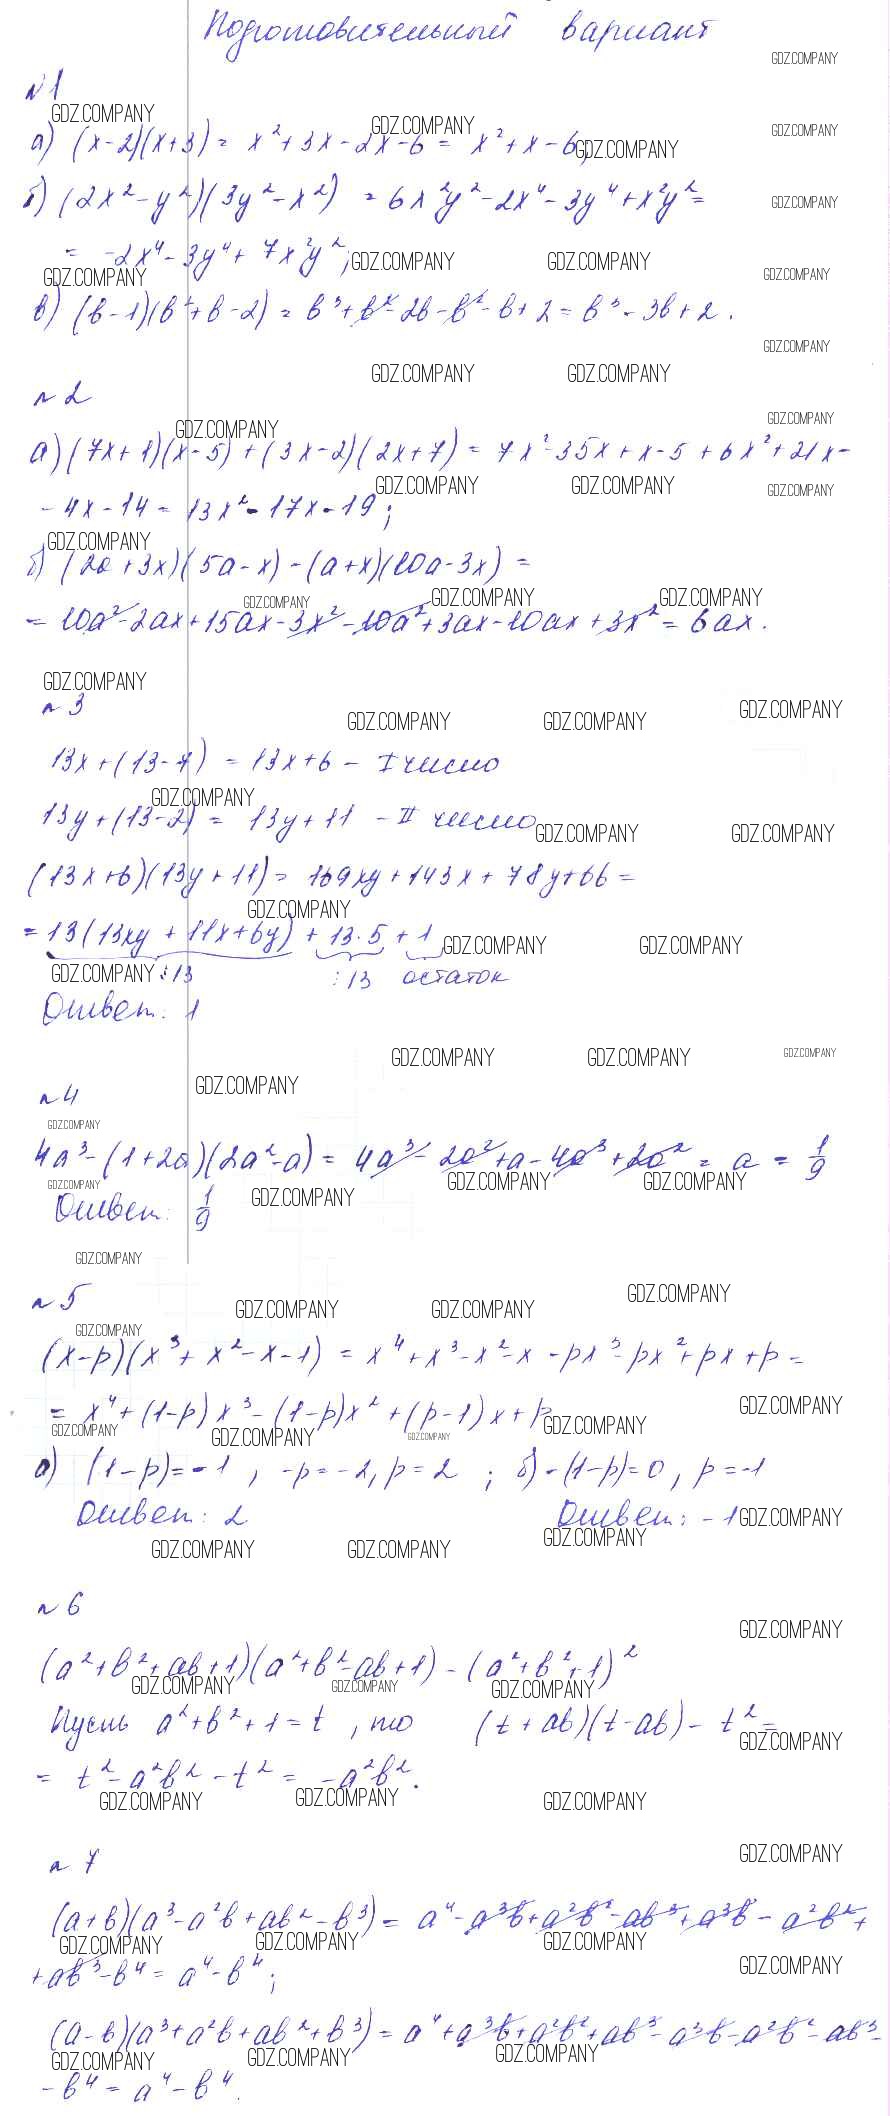 Подготовительный вариант
№1
а) (x-2)(x+3) = x²+3x-2x-6 = x²+x-6;
б) (2x²-y²)(3y²-x²) = 6x²y²-2x⁴-3y⁴+x²y²=
= -2x⁴-3y⁴+7x²y²;
в) (в-1)(в²+в-2) = в³+в²-2в-в²-в+2 = в³-3в+2.
№2
а) (7x+1)(x-5)+(3x-2)(2x+7) = 7x²-35x+x-5+6x²+21x-
-4x-14 = 13x²-17x-19;
б) (2a+3x)(5a-x)-(a+x)(10a-3x) =
= 10a²-2ax+15ax-3x²-10a²+3ax-10ax+3x² = 6ax.
№3
13x+(13-7) = 13x+6 - I число
13y+(13-2) = 13y+11 - II число
(13x+6)(13y+11) = 169xy+143x+78y+66 =
= 13(13xy+11x+6y) + 13·5 + 1
:13 :13 остаток
Ответ: 1
№4
4a³-(1+2a)(2a²-a) = 4a³-2a²+a-4a³+2a² = a = 1/9
Ответ: 1/9
№5
(x-p)(x³+x²-x-1) = x⁴+x³-x²-x-px³-px²+px+p =
= x⁴+(1-p)x³-(1-p)x²+(p-1)x+p
а) (1-p)=-1, -p=-2, p=2; б) -(1-p)=0, p=-1
Ответ: 2 Ответ: -1
№6
(a²+в²+aв+1)(a²+в²-aв+1)-(a²+в²+1)²
Пусть a²+в²+1=t, то (t+aв)(t-aв)-t²=
= t²-a²в²-t² = -a²в².
№7
(a+в)(a³-a²в+aв²-в³) = a⁴-a³в+a²в²-aв³+a³в-a²в²+
+aв³-в⁴ = a⁴-в⁴;
(a-в)(a³+a²в+aв²+в³) = a⁴+a³в+a²в²+aв³-a³в-a²в²-aв³-
-в⁴ = a⁴-в⁴.
GDZ.COMPANY